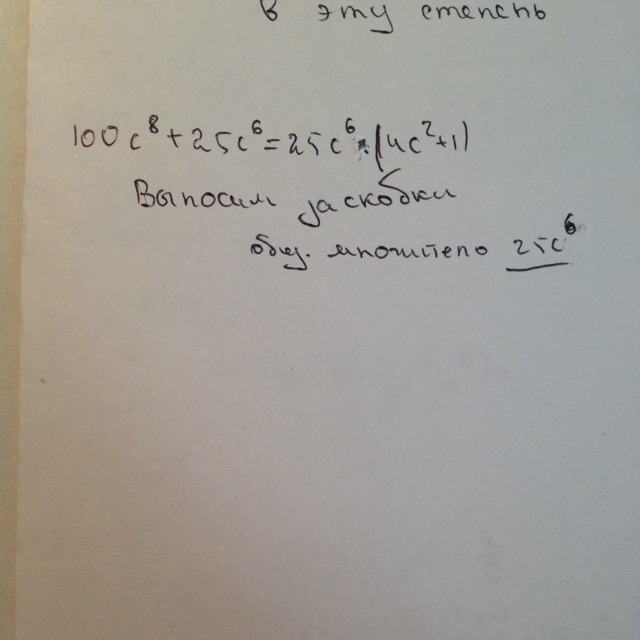 в эту степень
100c⁸+25c⁶=25c⁶·(4c²+1)
Выносим за скобки
общ. множитель 25c⁶